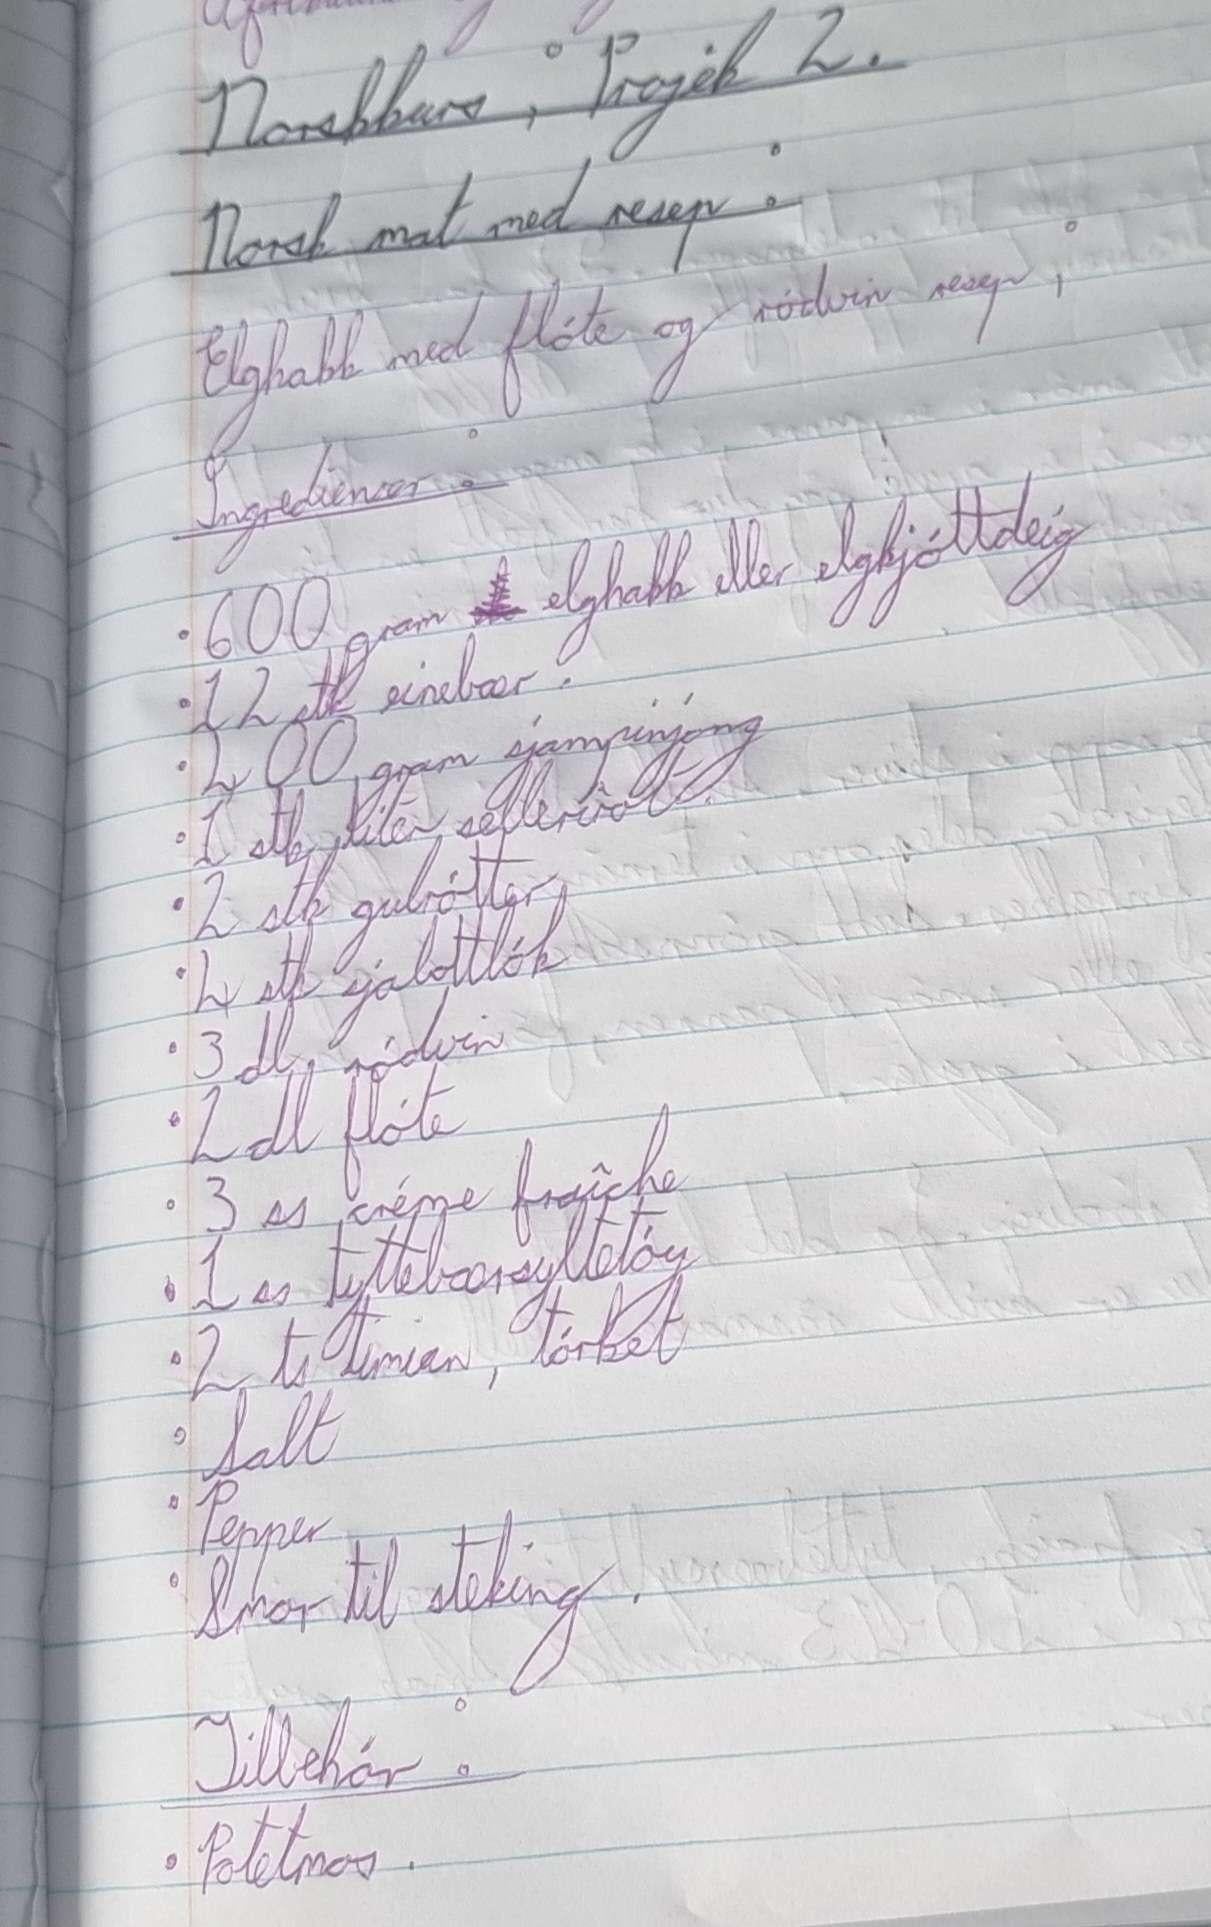 Norskkurs, Projek 2.
Norsk mat med resep :
Elghakk med flóte og ródvin resep,
Ingredienser :
• 600 gram elghakk eller elgkjóttdeig
• 12 stk einebær.
• 200 gram sjampinjong
• 1 stk liten sellerirót.
• 2 stk gulrótter
• 4 stk sjalottlók
• 3 dl. ródvin
• 2 dl flóte
• 3 ss créme fraîche
• 1 ss tyttebærsyltetóy
• 2 ts timian, tórket
• Salt
• Pepper
• Smor til steking.
Tillbehór :
• Potetmos.